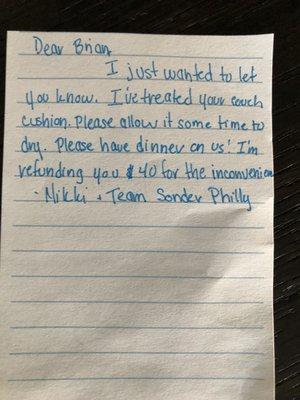 Dear Brian,
I just wanted to let
you know. I've treated your couch
cushion. Please allow it some time to
dry. Please have dinner on us! I'm
refunding you $40 for the inconvenien
- Nikki + Team Sonder Philly